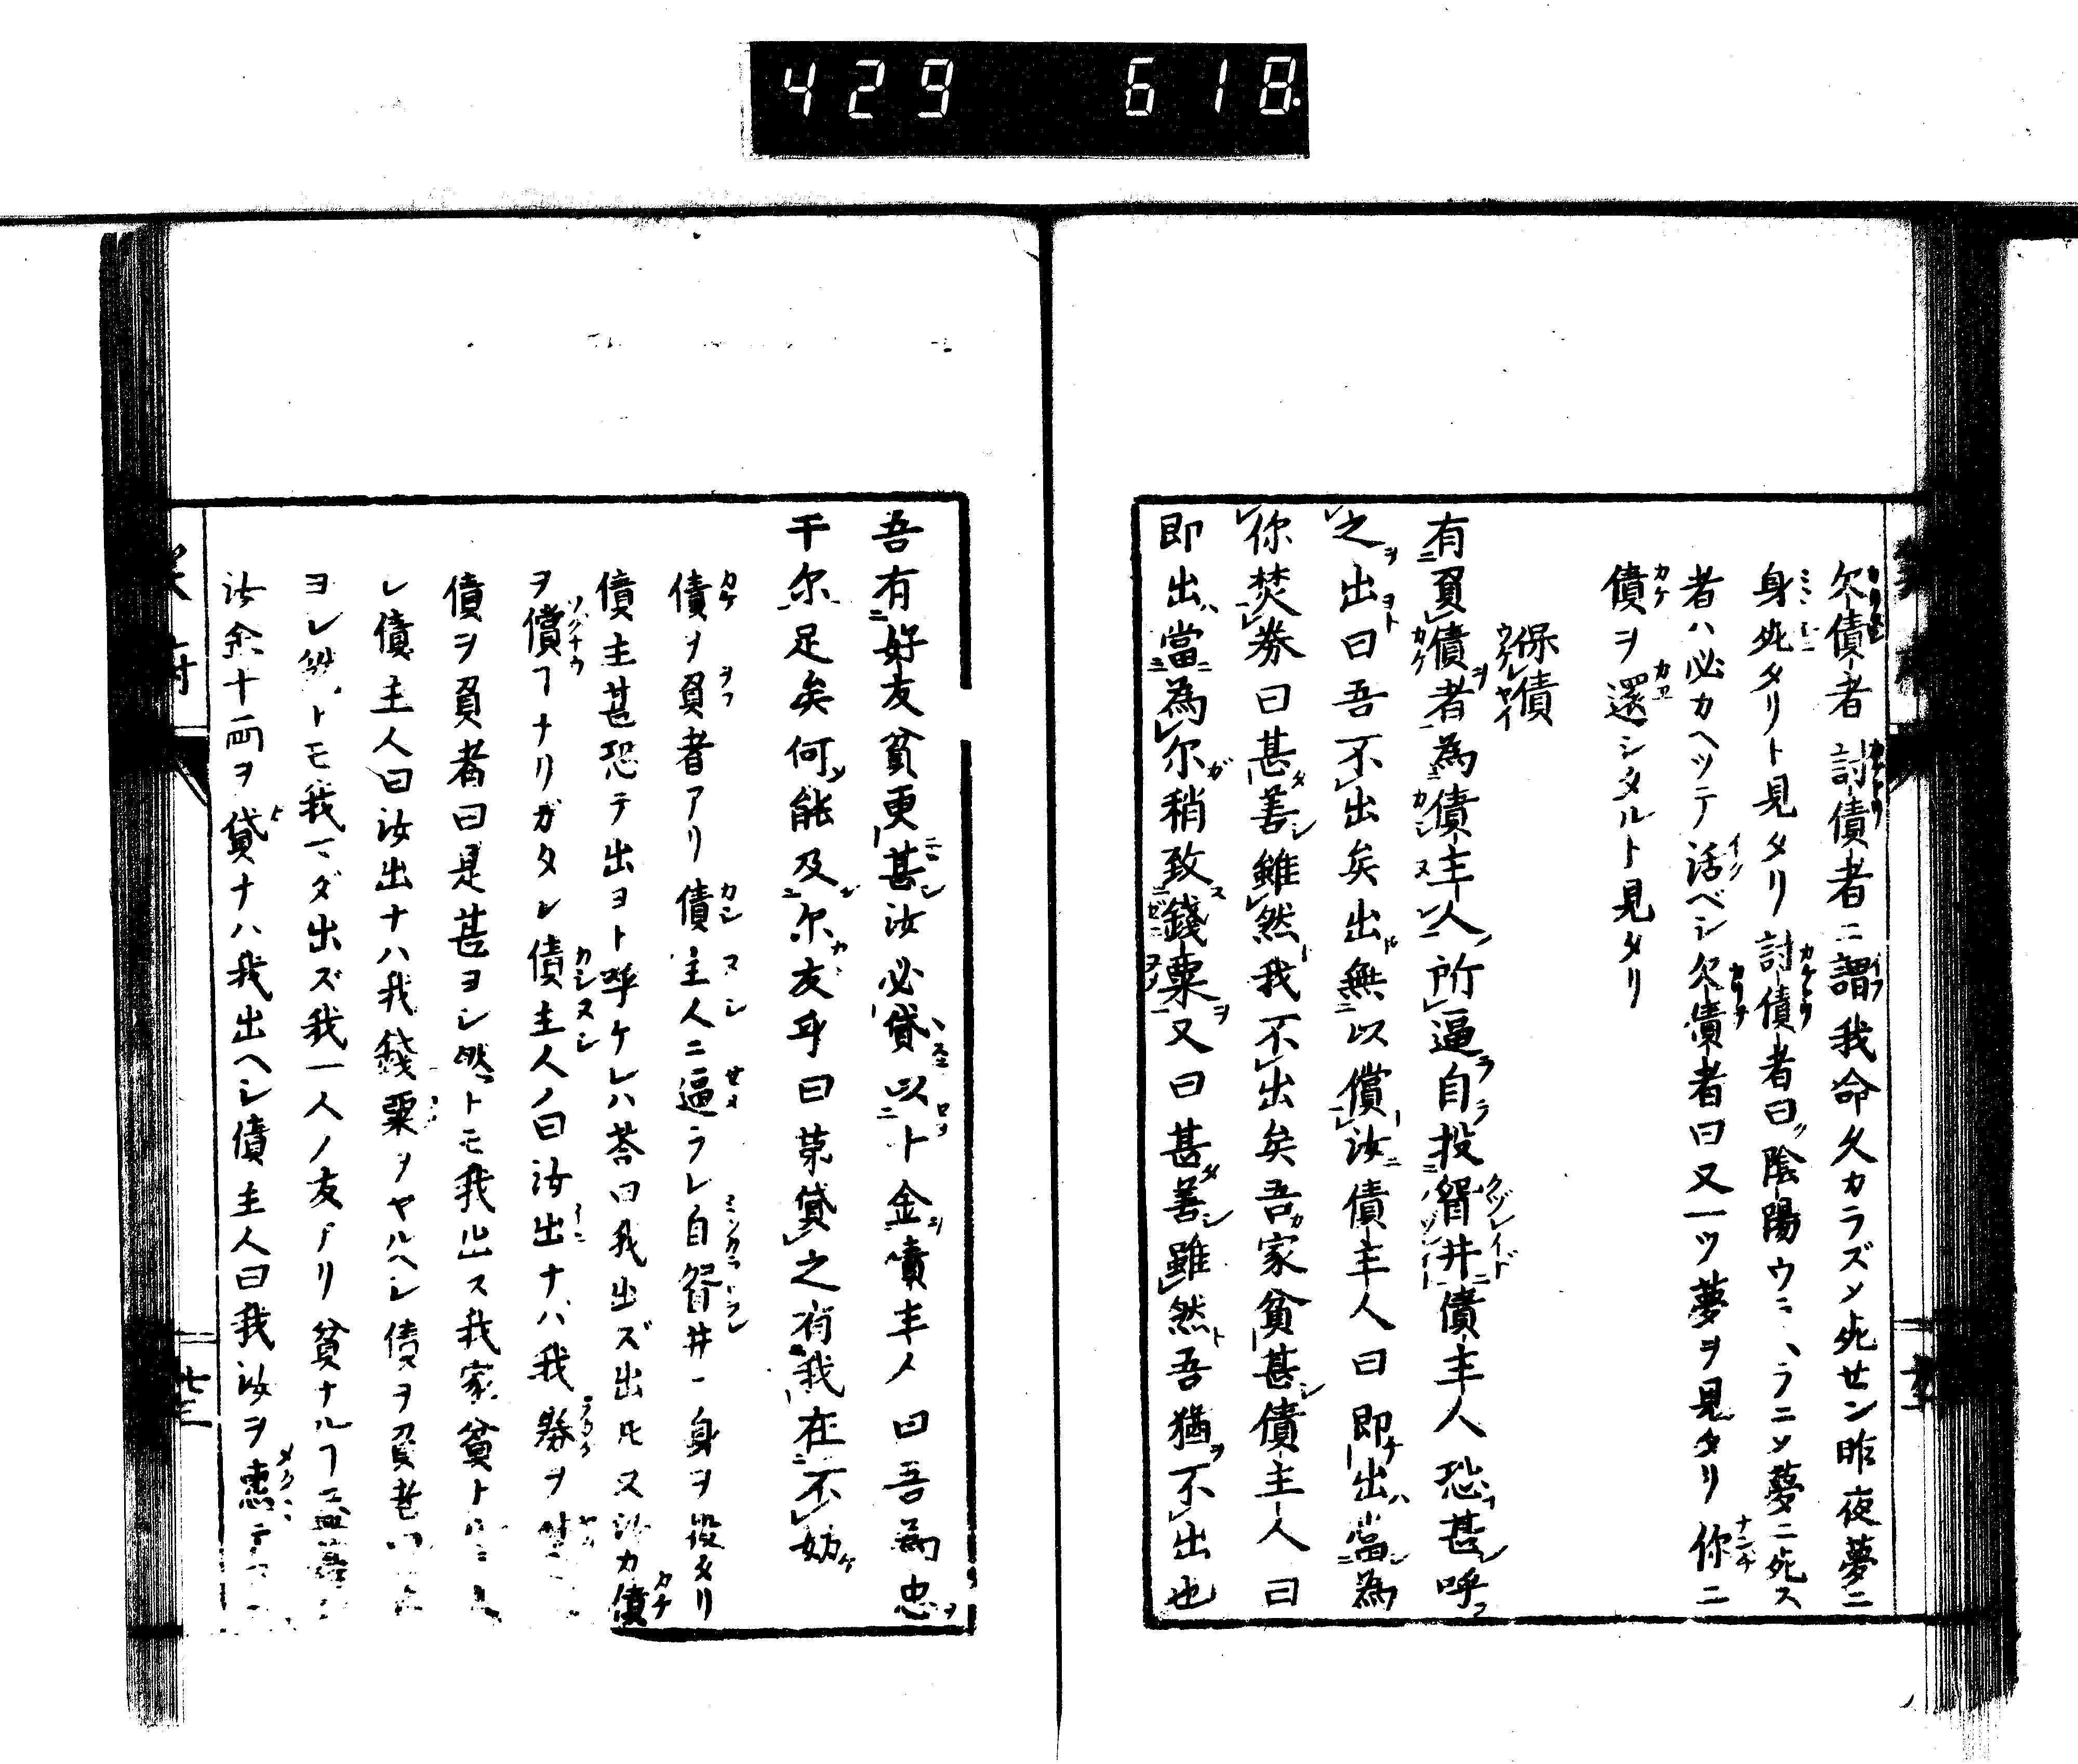 429 618
欠債者討債者ニ謂我命久カラズメ死せン昨夜夢ニ
身死タリト見タリ討債者曰陰陽ウラニメ夢ニ死ス
者ハ必カヘッテ活ベシ欠債者曰又一ツ夢ヲ見タリ你ニ
債ヲ還シタルト見タリ
保債
有負債者為債主人所逼自投眢井債主人恐甚呼
之出曰吾不出矣出無以償汝債主人曰即出當為
你焚券曰甚善雖然我不出矣吾家貧甚債主人曰
即出當為尔稍致錢粟又曰甚善雖然吾猶不出也
吾有好友貧更甚汝必貸以十金債主人曰吾為忠
于尔足矣何能及尔友乎曰第貸之有我在不妨
債ヲ負者アリ債主人ニ逼ラレ自眢井ニ身ヲ投タリ
債主甚恐テ出ヨト呼ケレハ荅曰我出ズ出ルモ汝カ債
ヲ償フナリガタレ債主人ノ曰汝出ナハ我券ヲ
債ヲ負者曰是甚ヨシ然トモ我出ス我家貧ト
レ債主人曰汝出ナハ我錢粟ヲヤルヘシ債ヲ負者曰
ヨシ然トモ我マダ出ズ我一人ノ友アリ貧ナルフ
汝金十両ヲ貸ナハ我出ヘシ債主人曰我汝ヲ惠
七三